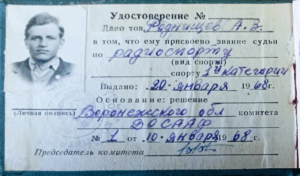 Удостоверение №
Дано тов. Роднищев А. В.
в том, что ему присвоено звание судьи
по радиоспорту
(вид спорта)
спорту 1й категории
Выдано 20 января 1968 г.
Основание: решение
(Личная подпись) Воронежского обл комитета
ДОСААФ
№ 1 от 10 января 1968 г.
Председатель комитета